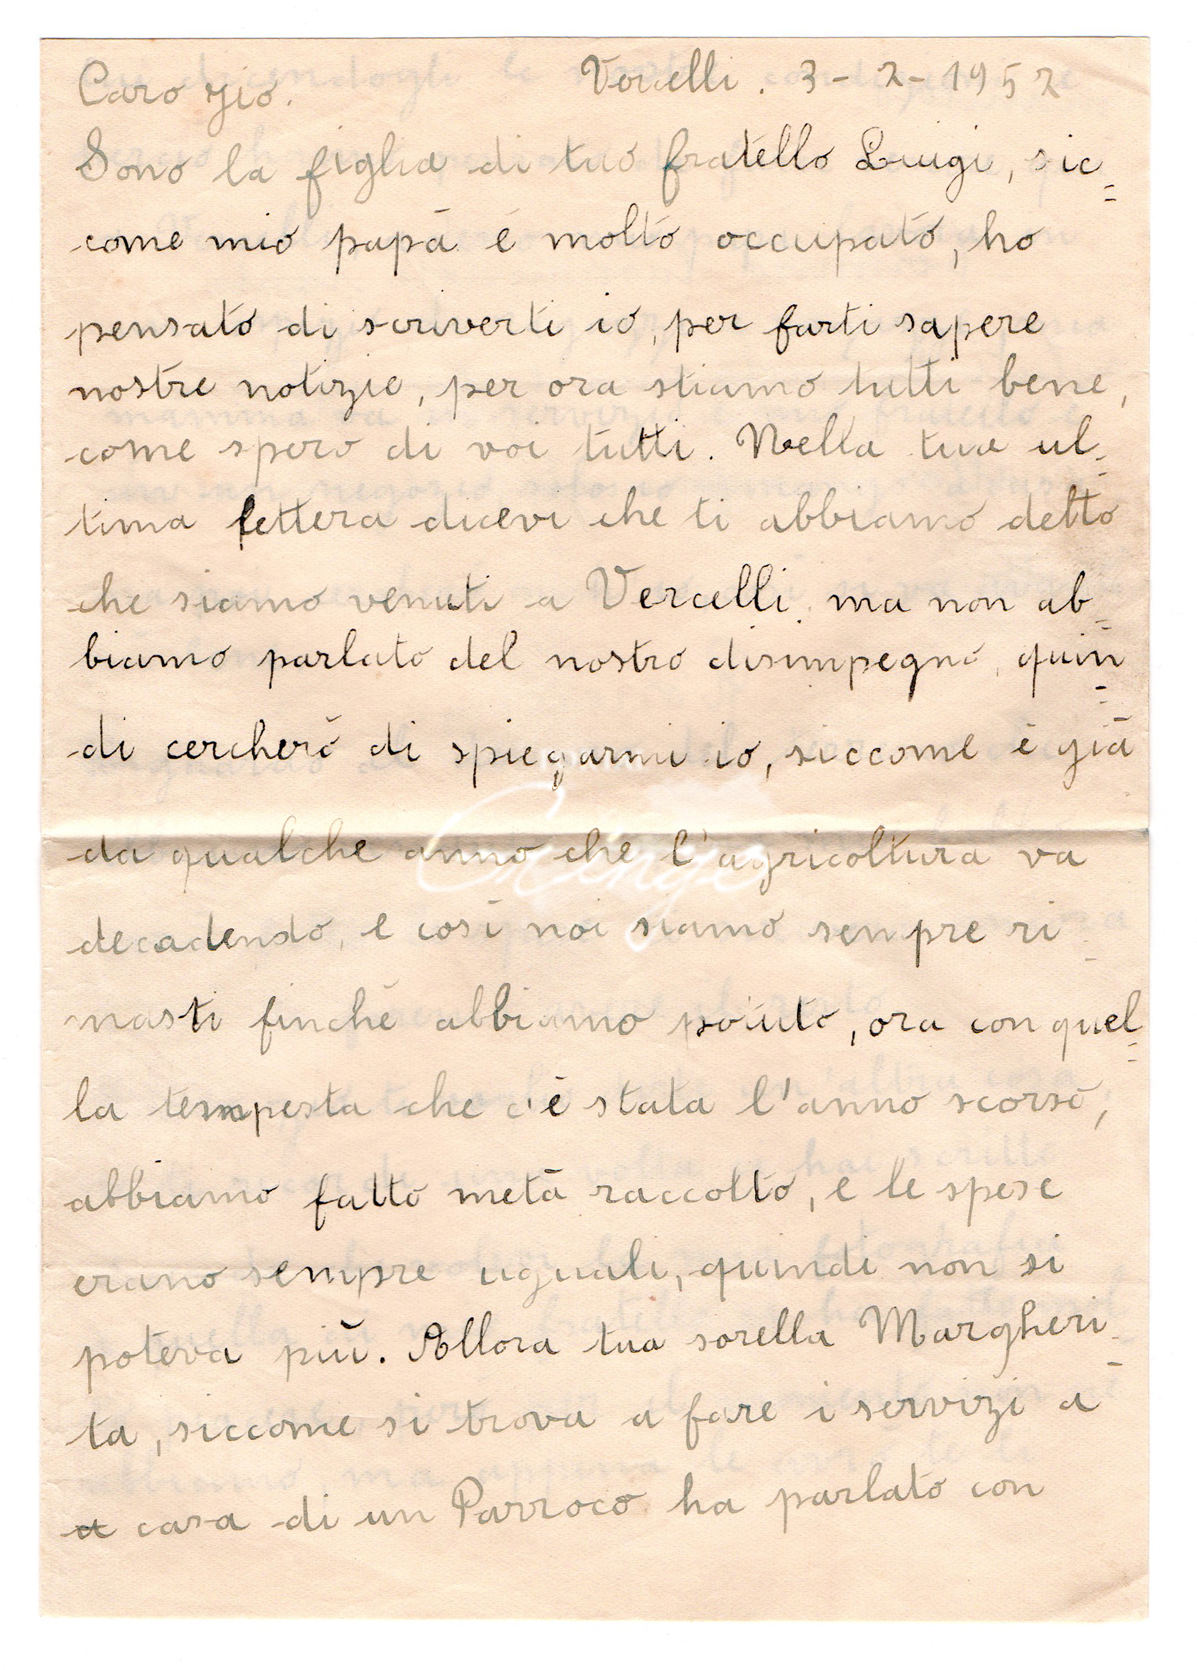 Caro zio. Vercelli. 3-2-1952
Sono la figlia di tuo fratello Luigi, sic=
come mio papà è molto occupato, ho
pensato di scriverti io, per farti sapere
nostre notizie, per ora stiamo tutti bene,
come spero di voi tutti. Nella tua ul=
tima lettera dicevi che ti abbiamo detto
che siamo venuti a Vercelli, ma non ab=
biamo parlato del nostro disimpegno, quin=
di cercherò di spiegarmi io, siccome è già
da qualche anno che l'agricoltura va
decadendo, e così noi siamo sempre ri-
masti finchè abbiamo potuto, ora con quel=
la tempesta che c'è stata l'anno scorso,
abbiamo fatto metà raccolto, e le spese
erano sempre uguali, quindi non si
poteva più. Allora tua sorella Margheri=
ta, siccome si trova a fare i servizi a
a casa di un Parroco ha parlato con